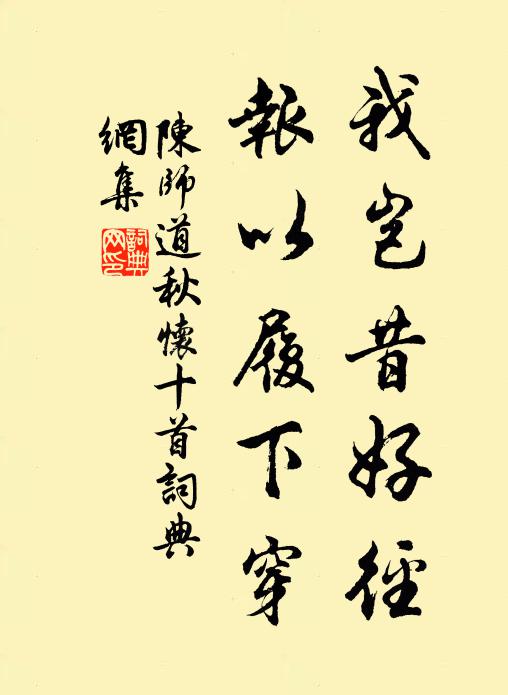 我岂昔好径
報以履下穿
陳師道秋懷十首詞典
網集
詞典網印